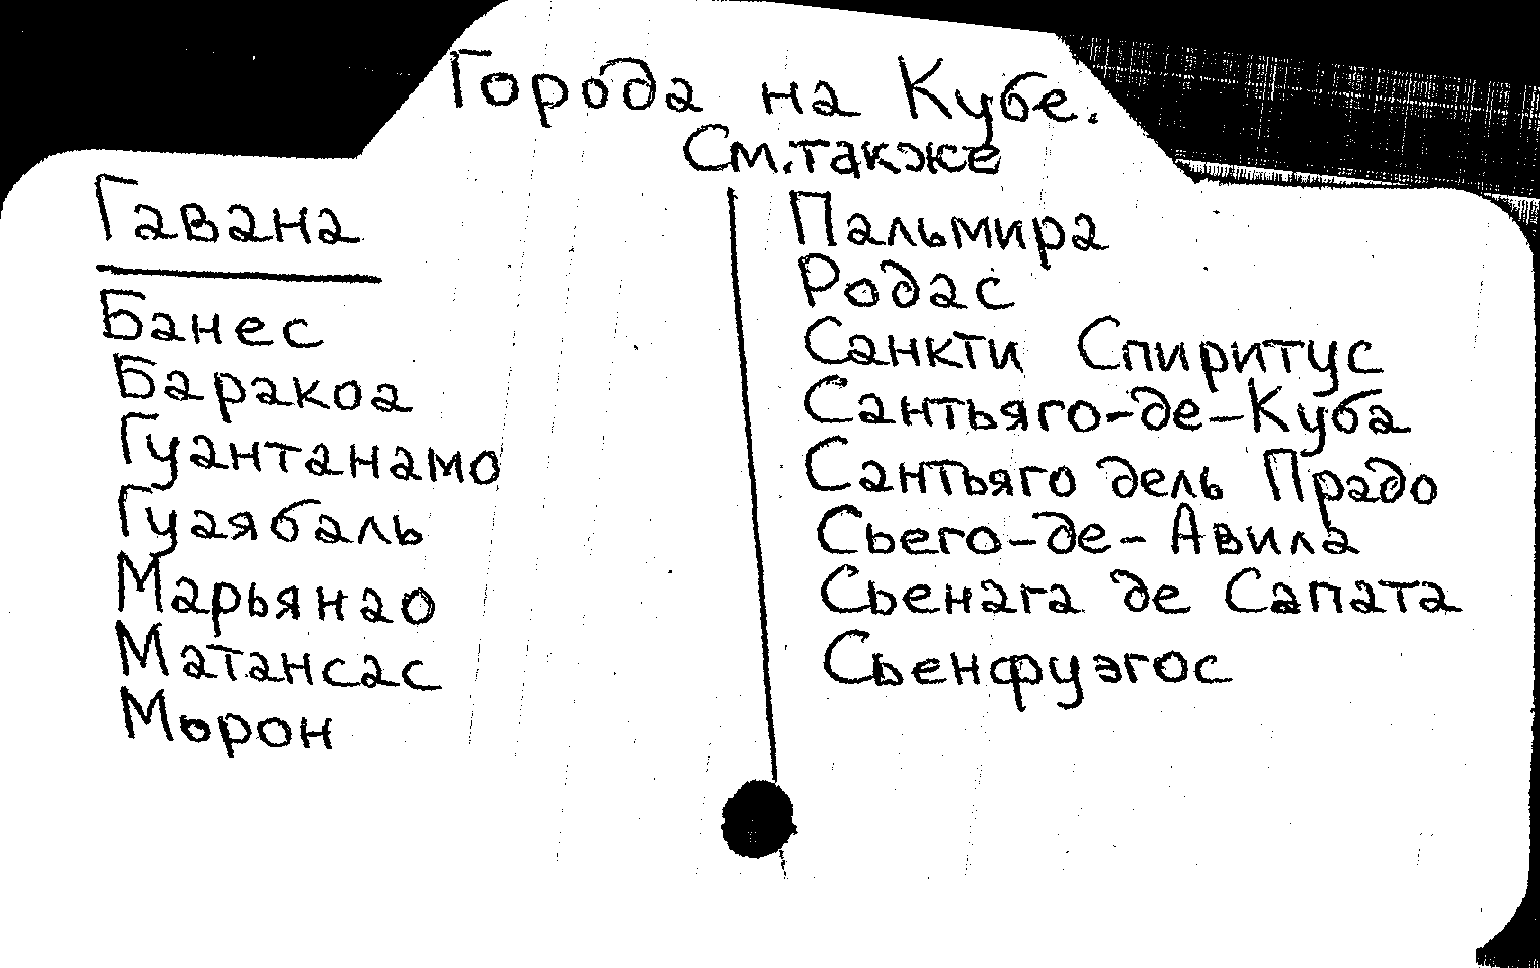 Города на Кубе.
См. также
Гавана
Банес
Баракоа
Гуантанамо
Гуаябаль
Марьянао
Матансас
Морон
Пальмира
Родас
Санкти Спиритус
Сантьяго-де-Куба
Сантьяго дель Прадо
Сьего-де-Авила
Сьенага де Сапата
Сьенфуэгос